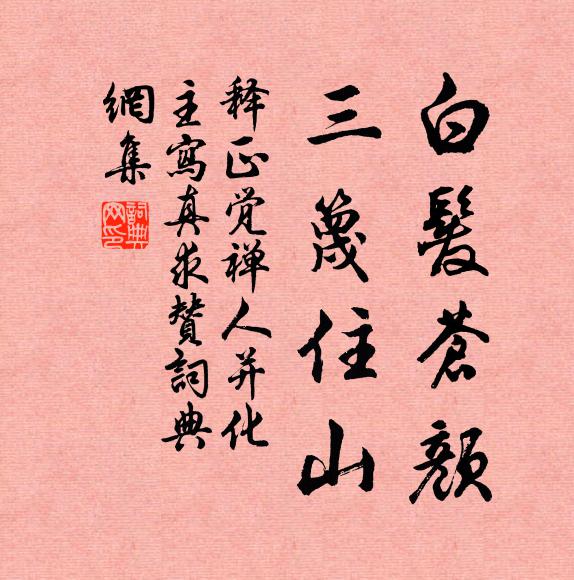 白髮蒼顏
三篾住山
释正觉禅人并化
主寫真求贊詞典
網集
詞典網印